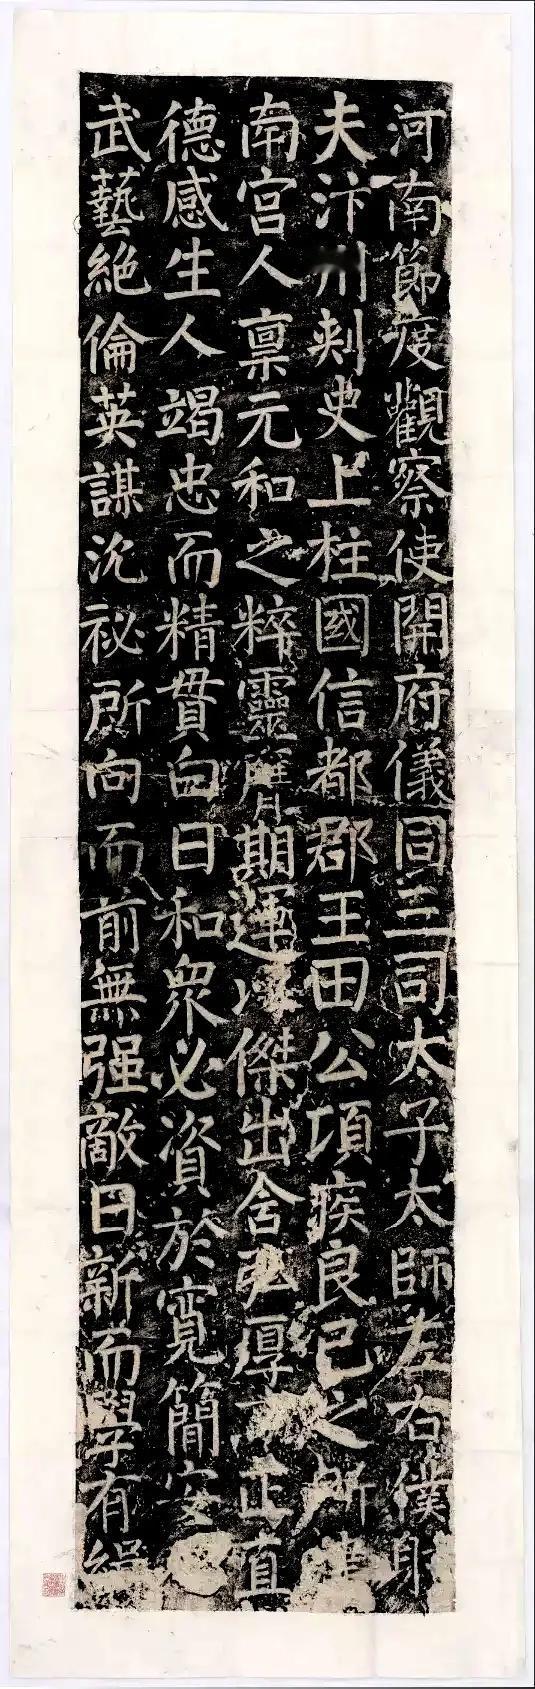 河南節度觀察使開府儀同三司太子太師左右僕射
夫汴州刺史上柱國信都郡王田公項疾良已之所建
南宮人稟元和之粹靈膺期運以傑出含弘厚方正直
德感生人竭忠而精貫白日和眾必資於寬簡安
武藝絕倫英謀沉祕所向而前無强敵日新而學有緝